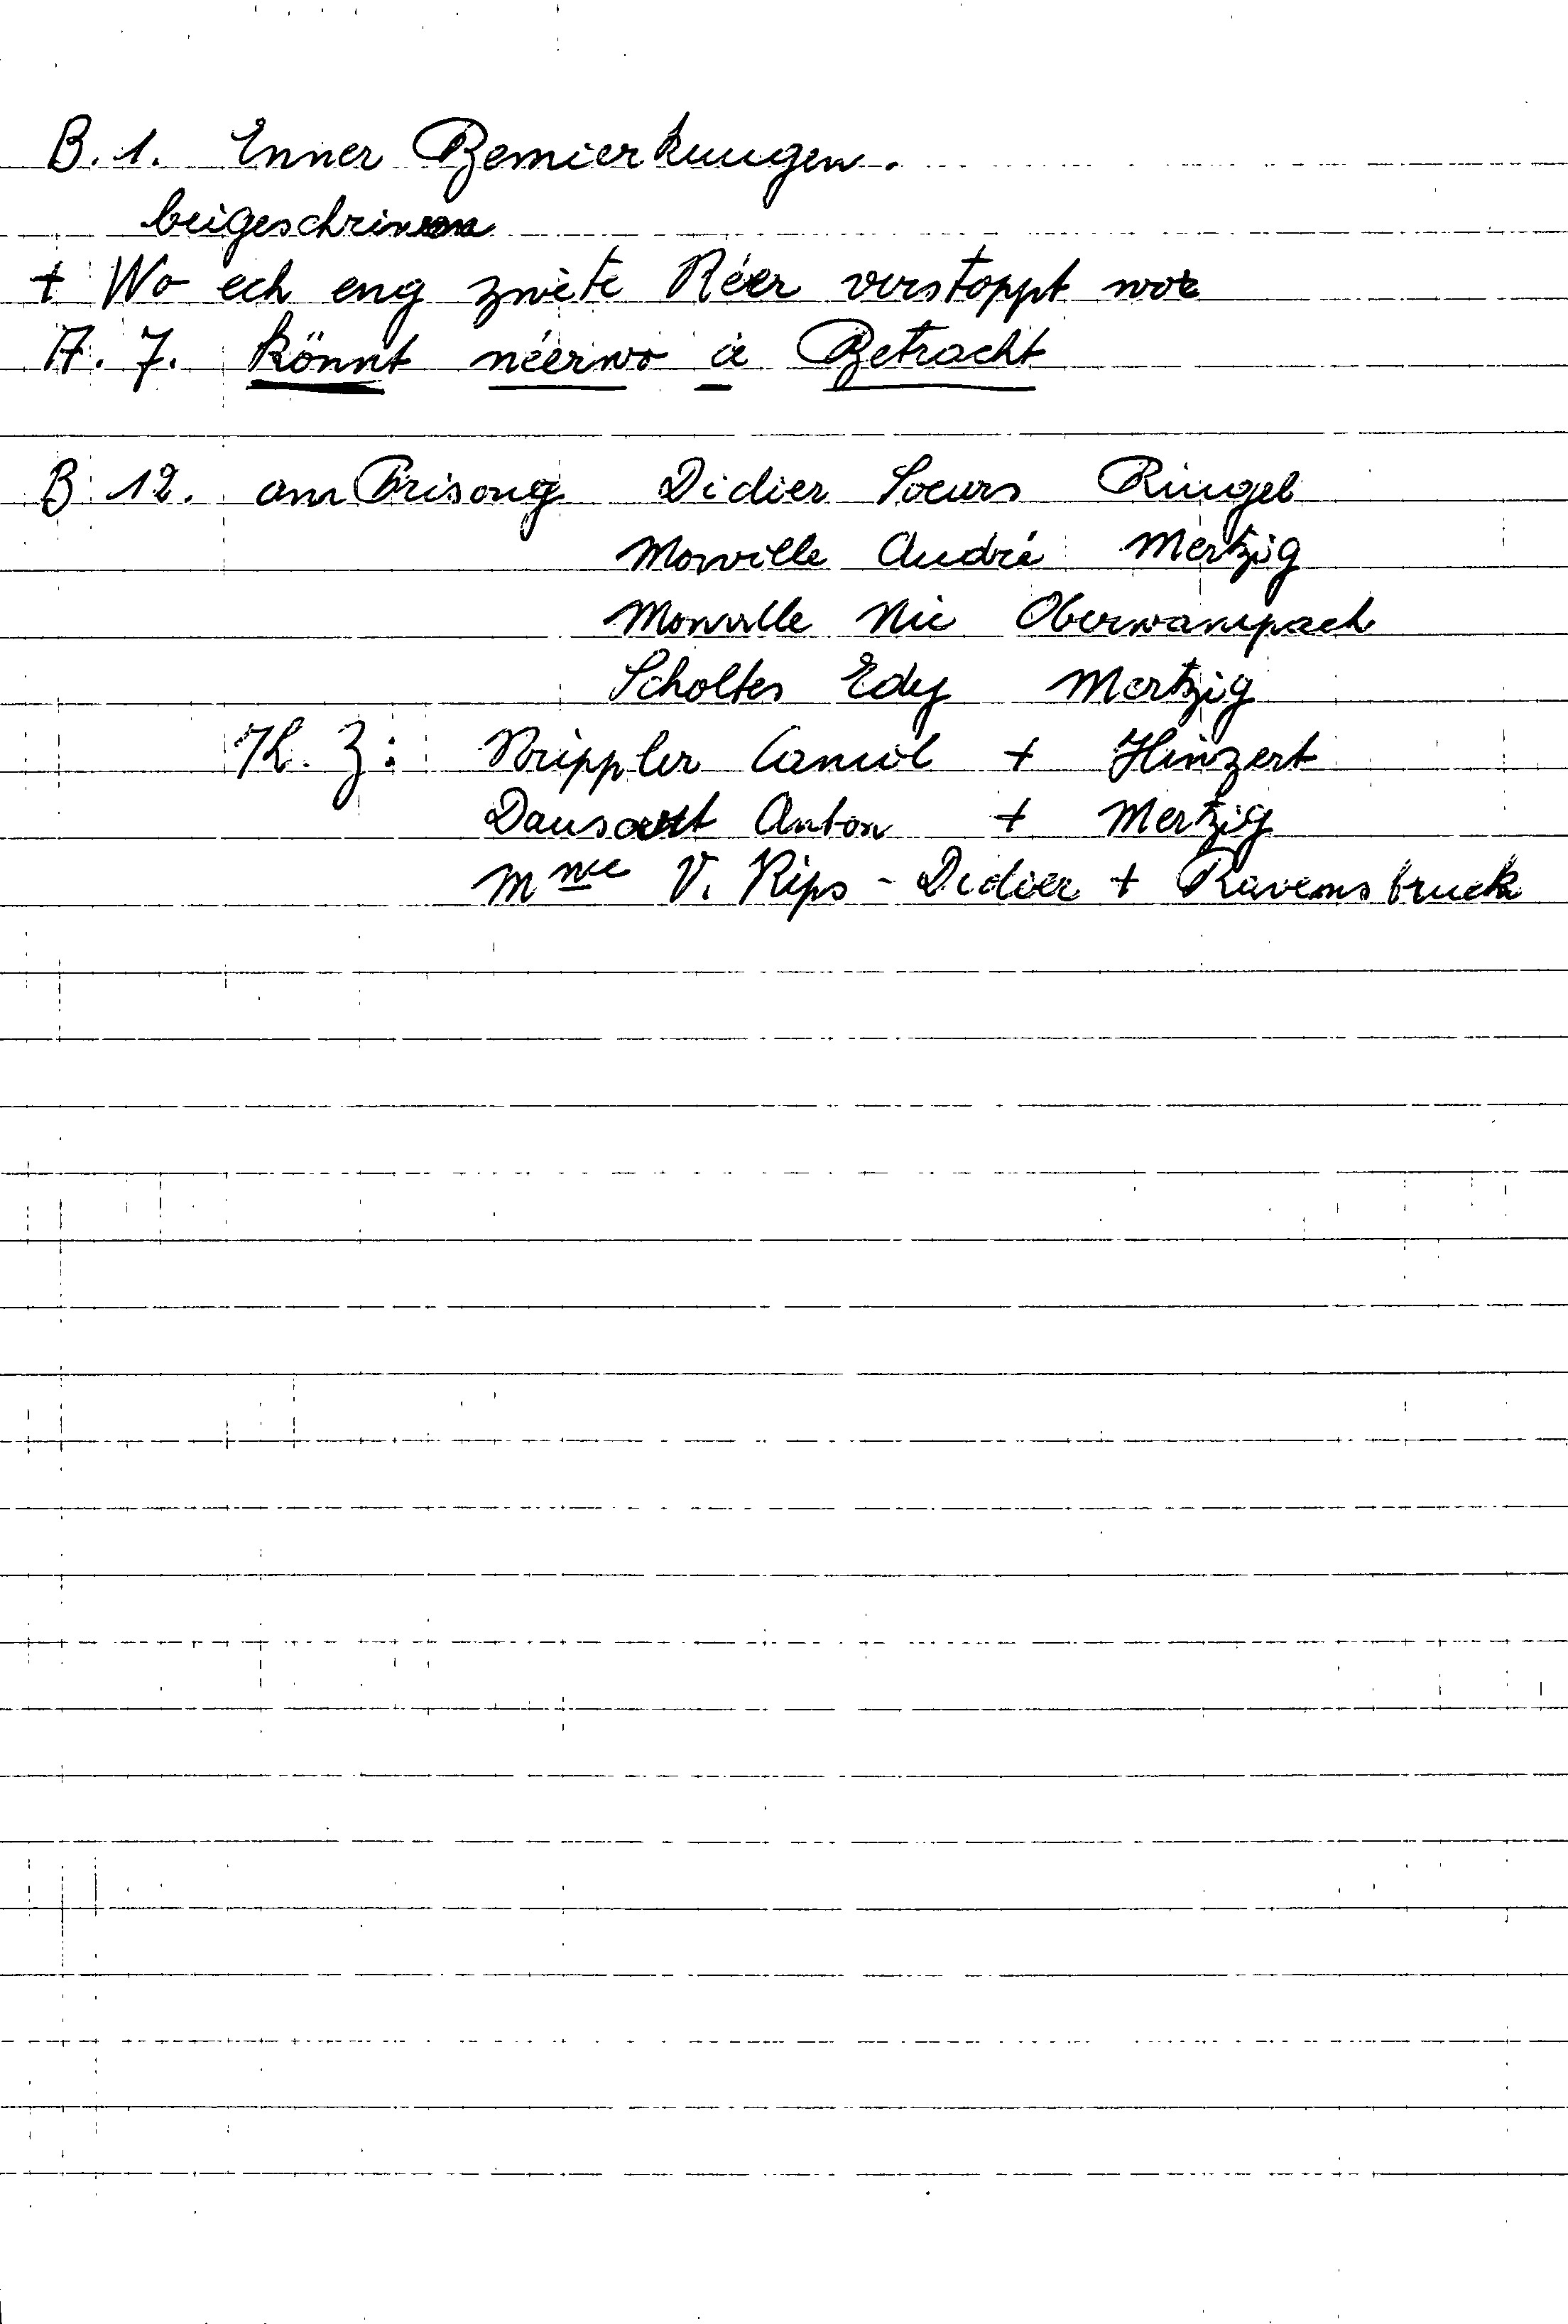 B. 1. Enner Bemierkungen.
beigeschriwen
+ Wo ech eng zwéte Réer verstoppt wor
A. 7. könnt néerwo a Betracht
B 12. am Prisong Didier Soeurs Ringel
Monville André Mertzig
Monville Nic Oberwampach
Scholtes Edy Mertzig
K. Z: Krippler Camiol + Hinzert
Dausort Anton + Mertzig
Mme V. Rips - Didier + Ravensbruck